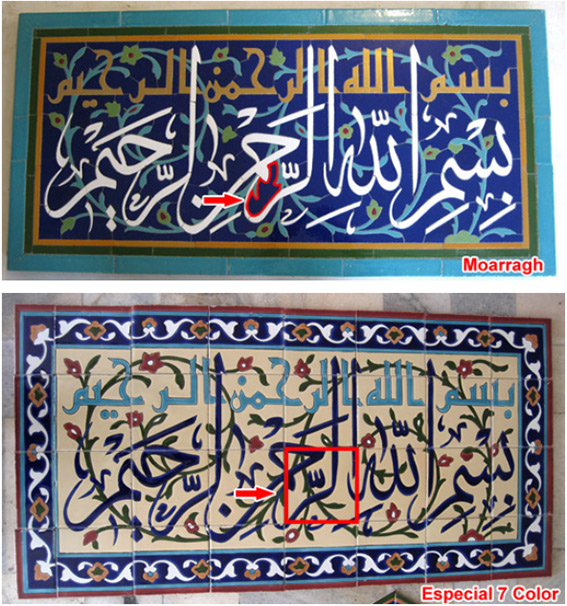 بسم الله الرحمن الرحیم
بِسْمِ اللّٰهِ الرَّحْمٰنِ الرَّحِیمِ
Moarragh
بسم الله الرحمن الرحیم
بِسْمِ اللّٰهِ الرَّحْمٰنِ الرَّحِیمِ
Especial 7 Color